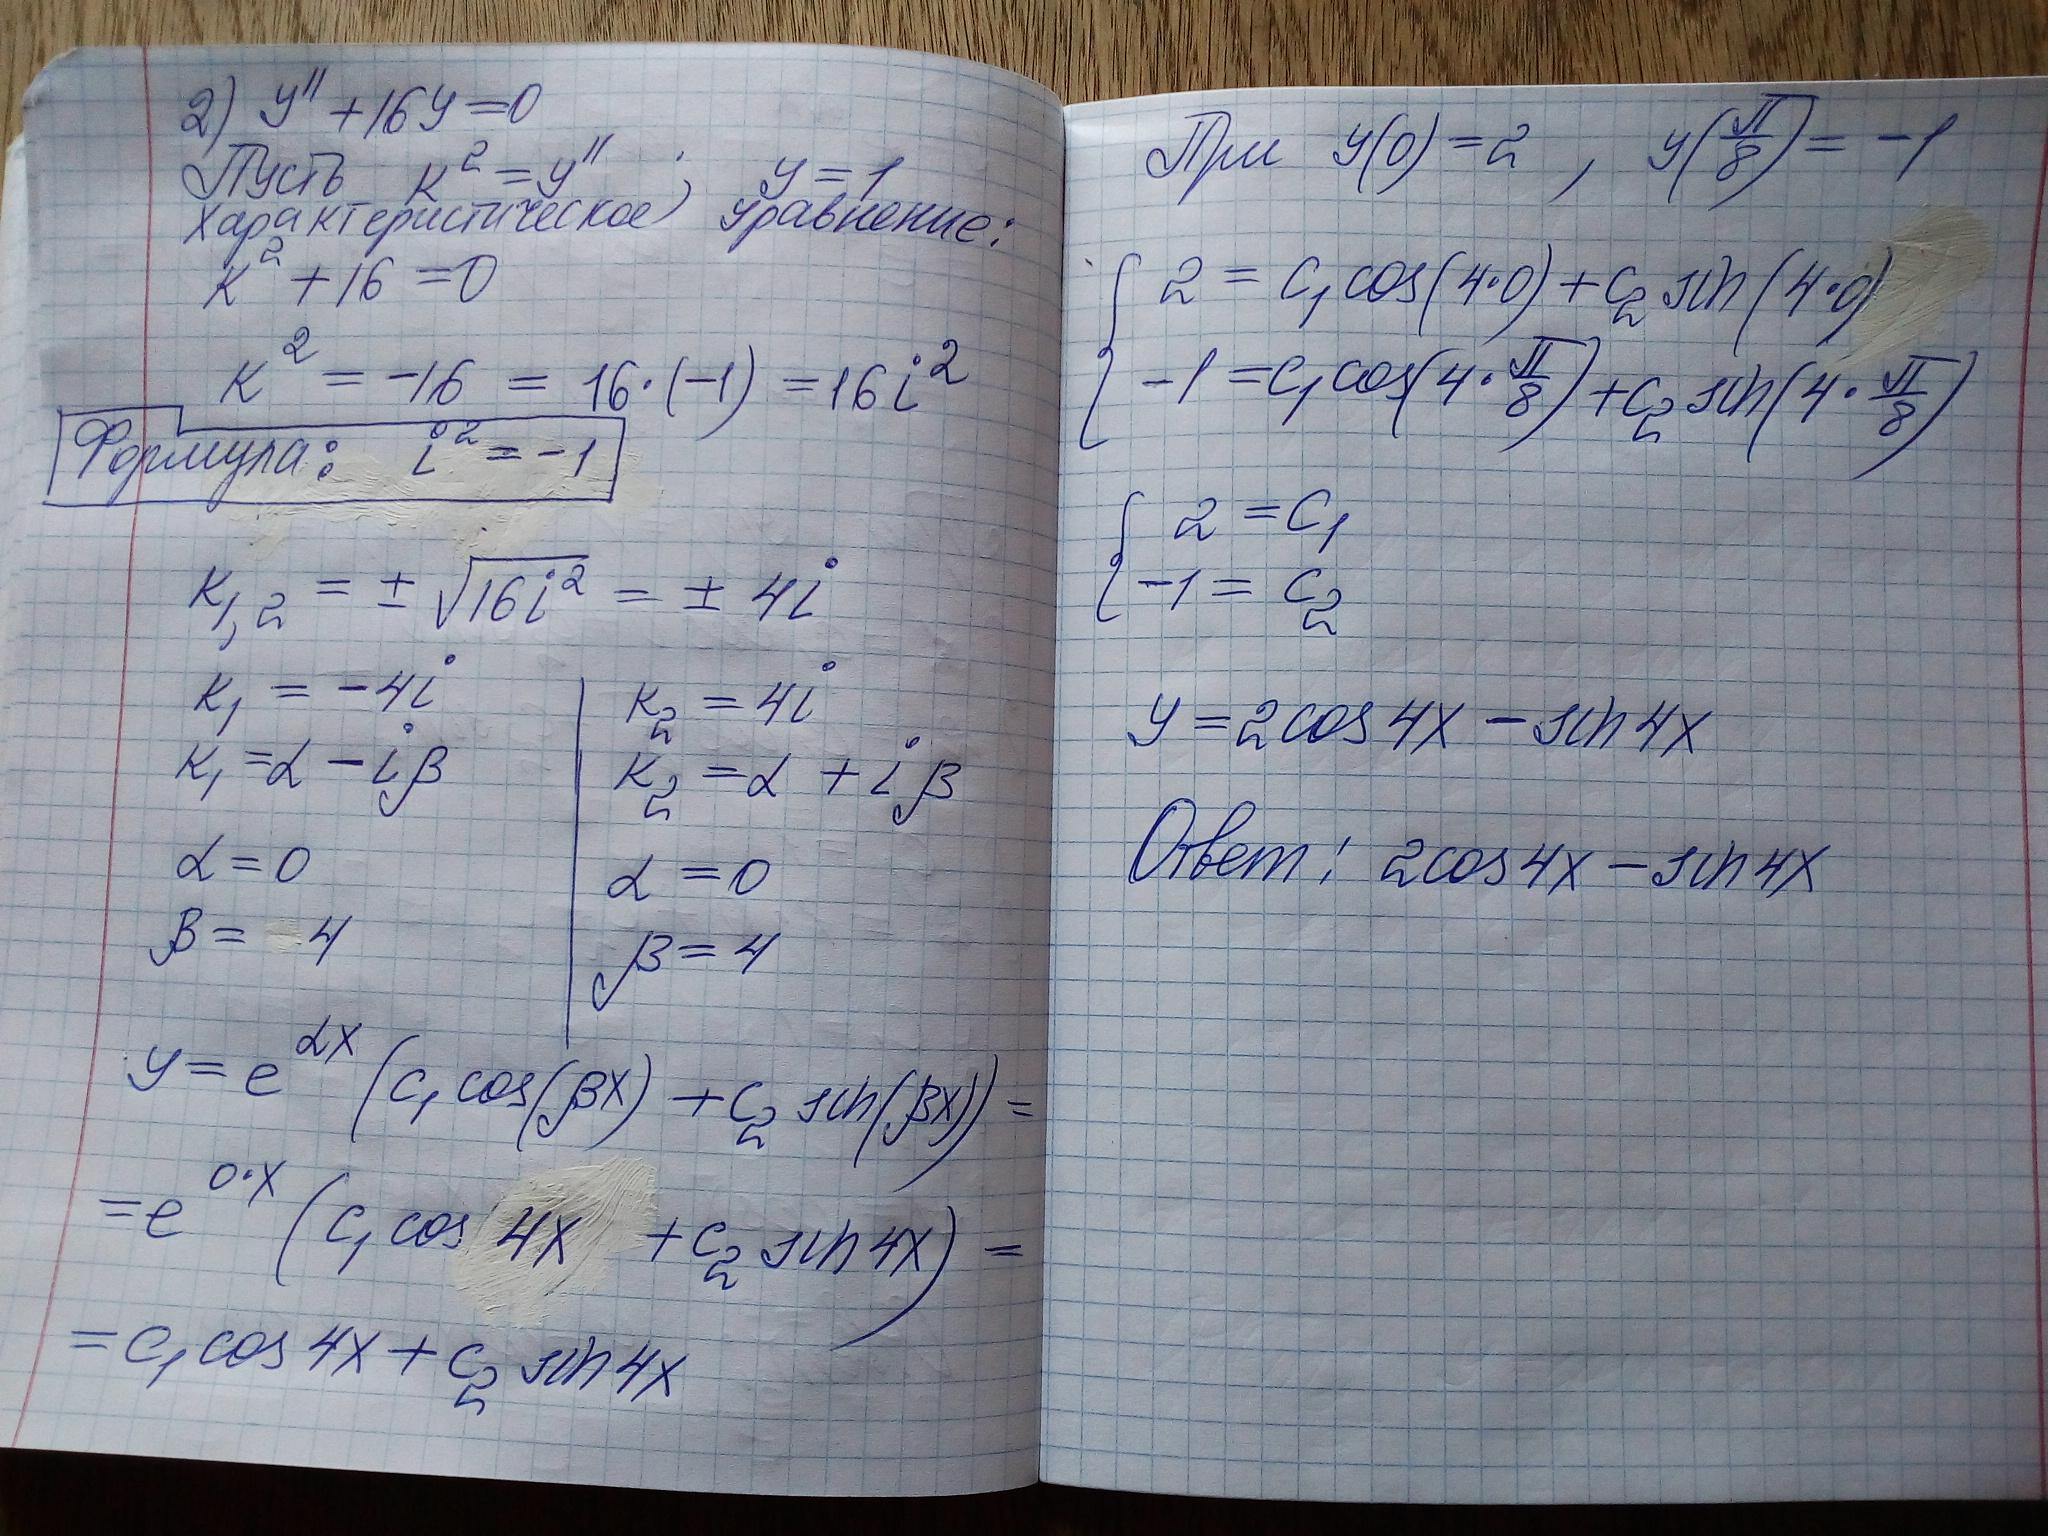 2) y'' + 16y = 0
Пусть k² = y'' ; y = 1
характеристическое уравнение:
k² + 16 = 0
k² = -16 = 16·(-1) = 16i²
Формула: i² = -1
k₁,₂ = ± √16i² = ± 4i
k₁ = -4i
k₁ = α - iβ
α = 0
β = 4
k₂ = 4i
k₂ = α + iβ
α = 0
β = 4
y = e^αx (c₁ cos(βx) + c₂ sin(βx)) =
= e^0·x (c₁ cos 4x + c₂ sin 4x) =
= c₁ cos 4x + c₂ sin 4x
При y(0) = 2 , y(π/8) = -1
{ 2 = c₁ cos(4·0) + c₂ sin(4·0)
-1 = c₁ cos(4·π/8) + c₂ sin(4·π/8)
{ 2 = c₁
-1 = c₂
y = 2cos 4x - sin 4x
Ответ: 2cos 4x - sin 4x